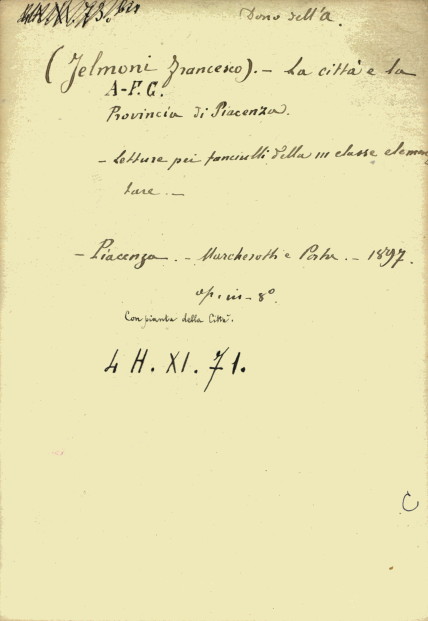 Dono dell'A.
(Jelmoni Francesco). - La città e la
A-F.G.
Provincia di Piacenza.
- Letture pei fanciulli della III classe elemen
tare. -
- Piacenza. - Marchesotti e Porta. - 1897.
op. in - 8°.
Con pianta della Città.
4 H. XI. 71.
C